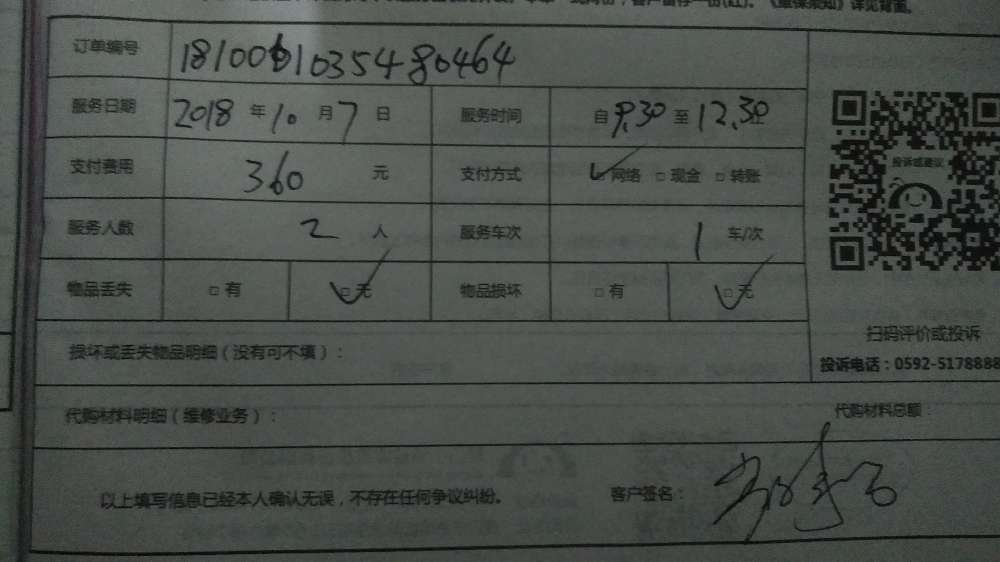 《维保须知》详见背面。
订单编号 18100610354480464
服务日期 2018 年 10 月 7 日 服务时间 自 9.30 至 12.30
支付费用 360 元 支付方式 ✓网络 □ 现金 □ 转账
投诉或建议
服务人数 2 人 服务车次 1 车/次
物品丢失 □ 有 ☑ 无 物品损坏 □ 有 ☑ 无
扫码评价或投诉
损坏或丢失物品明细（没有可不填）：
投诉电话：0592-5178888
代购材料明细（维修业务）： 代购材料总额：
以上填写信息已经本人确认无误，不存在任何争议纠纷。 客户签名：